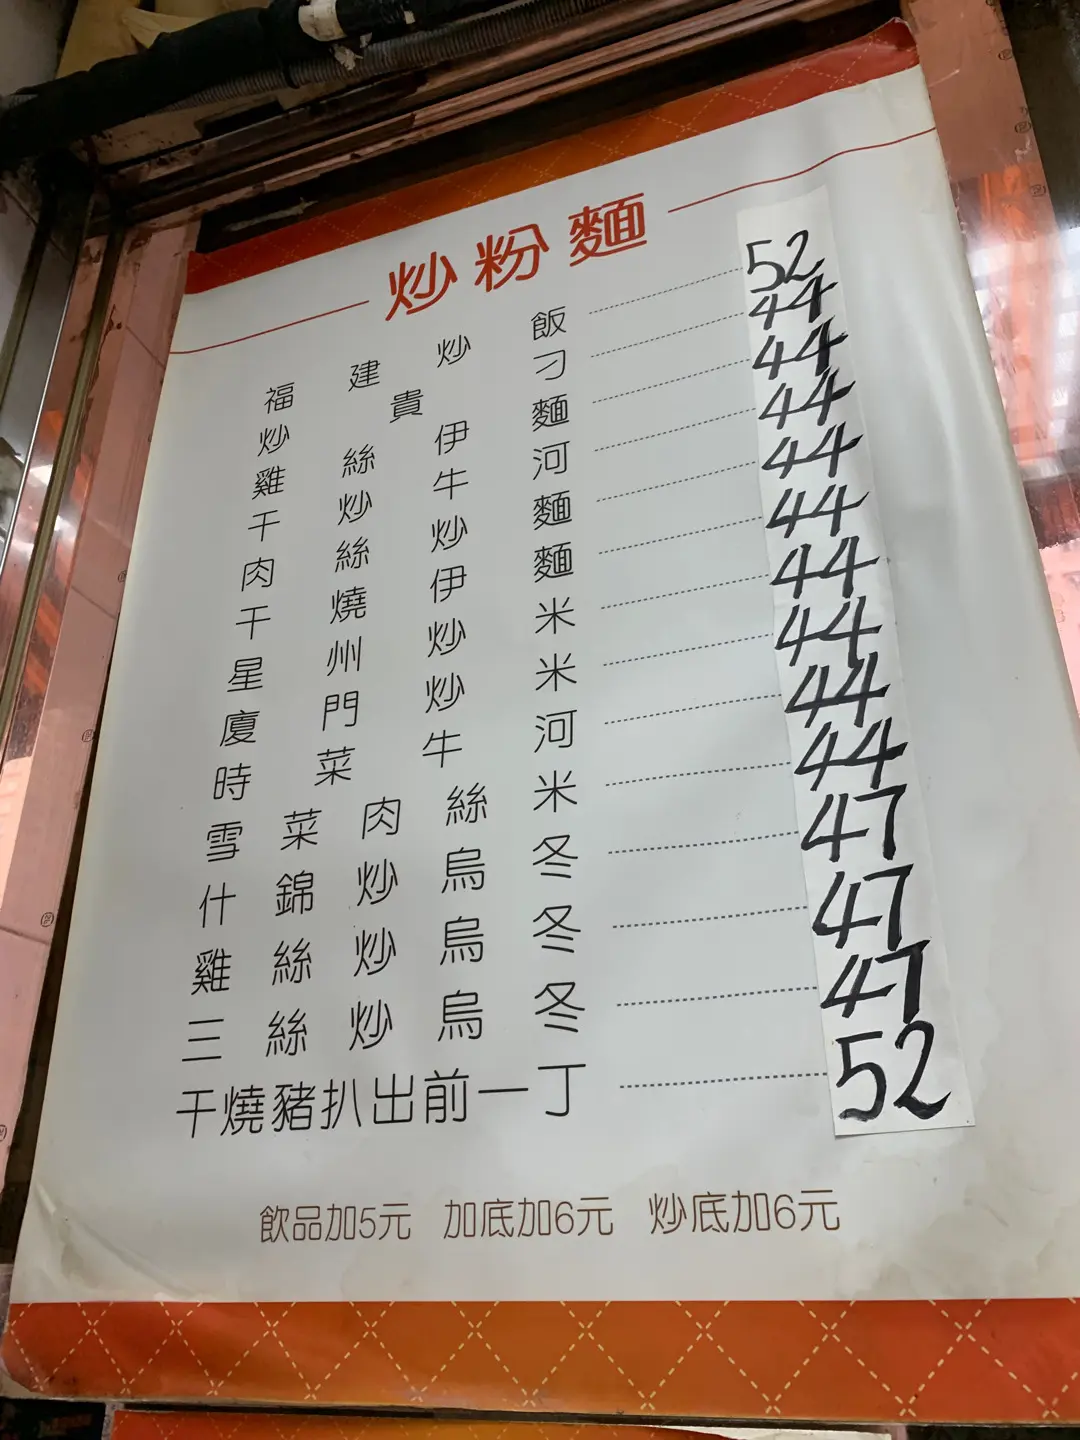 炒粉麵
福建炒飯 52
炒貴刁 44
雞絲伊麵 44
干炒牛河 44
肉絲炒麵 44
干燒伊麵 44
星州炒米 44
廈門炒米 44
時菜牛河 44
雪菜肉絲米 44
什錦炒烏冬 47
雞絲炒烏冬 47
三絲炒烏冬 47
干燒豬扒出前一丁 52
飲品加5元 加底加6元 炒底加6元